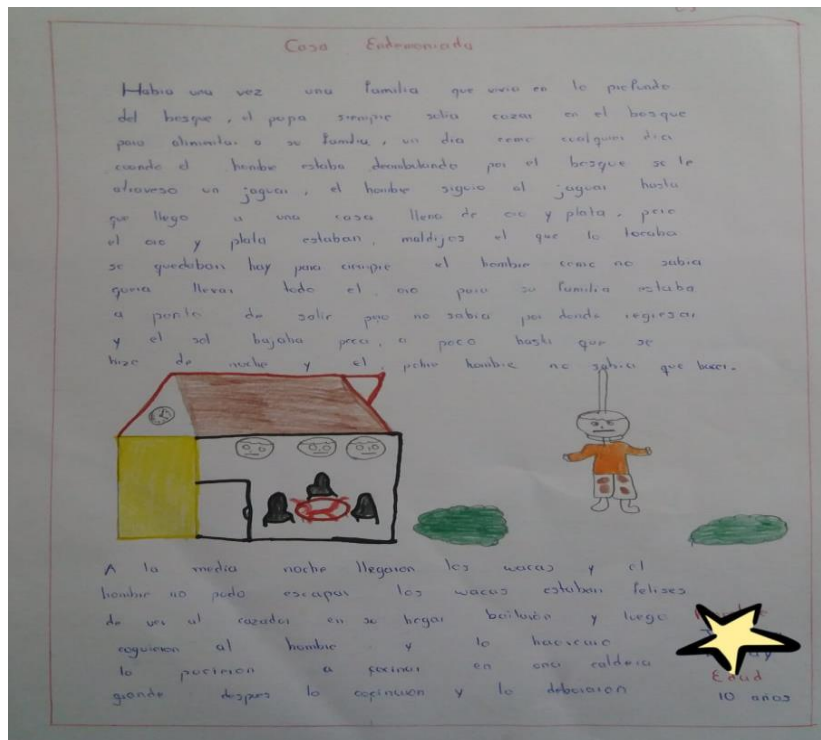 Casa Endemoniada
Habia una vez una familia que vivia en lo profundo
del bosque, el papa siempre salia cazar en el bosque
para alimentar a su familia, un dia como cualquier dia
cuando el hombre estaba deambulando por el bosque se le
atraveso un jaguar, el hombre siguio al jaguar hasta
que llego a una casa llena de oro y plata. pero
el oro y plata estaban, maldijos el que lo tocaba
se quedaban hay para ciempre el hombre como no sabia
queria llevar todo el oro para su familia estaba
a punto de salir pero no sabia por donde regresar
y el sol bajaba poco, a poco hasta que se
hizo de noche y el, pobre hombre no sabia que hacer.
A la media noche llegaron los wacas y el
hombre no pudo escapar los wacas estaban felises
de ver al cazador en su hogar bailaron y luego
coguieron al hombre y lo
lo pucieron a cocinar en una caldera
grande despues lo cocinaron y lo deboraron
Edad
10 años